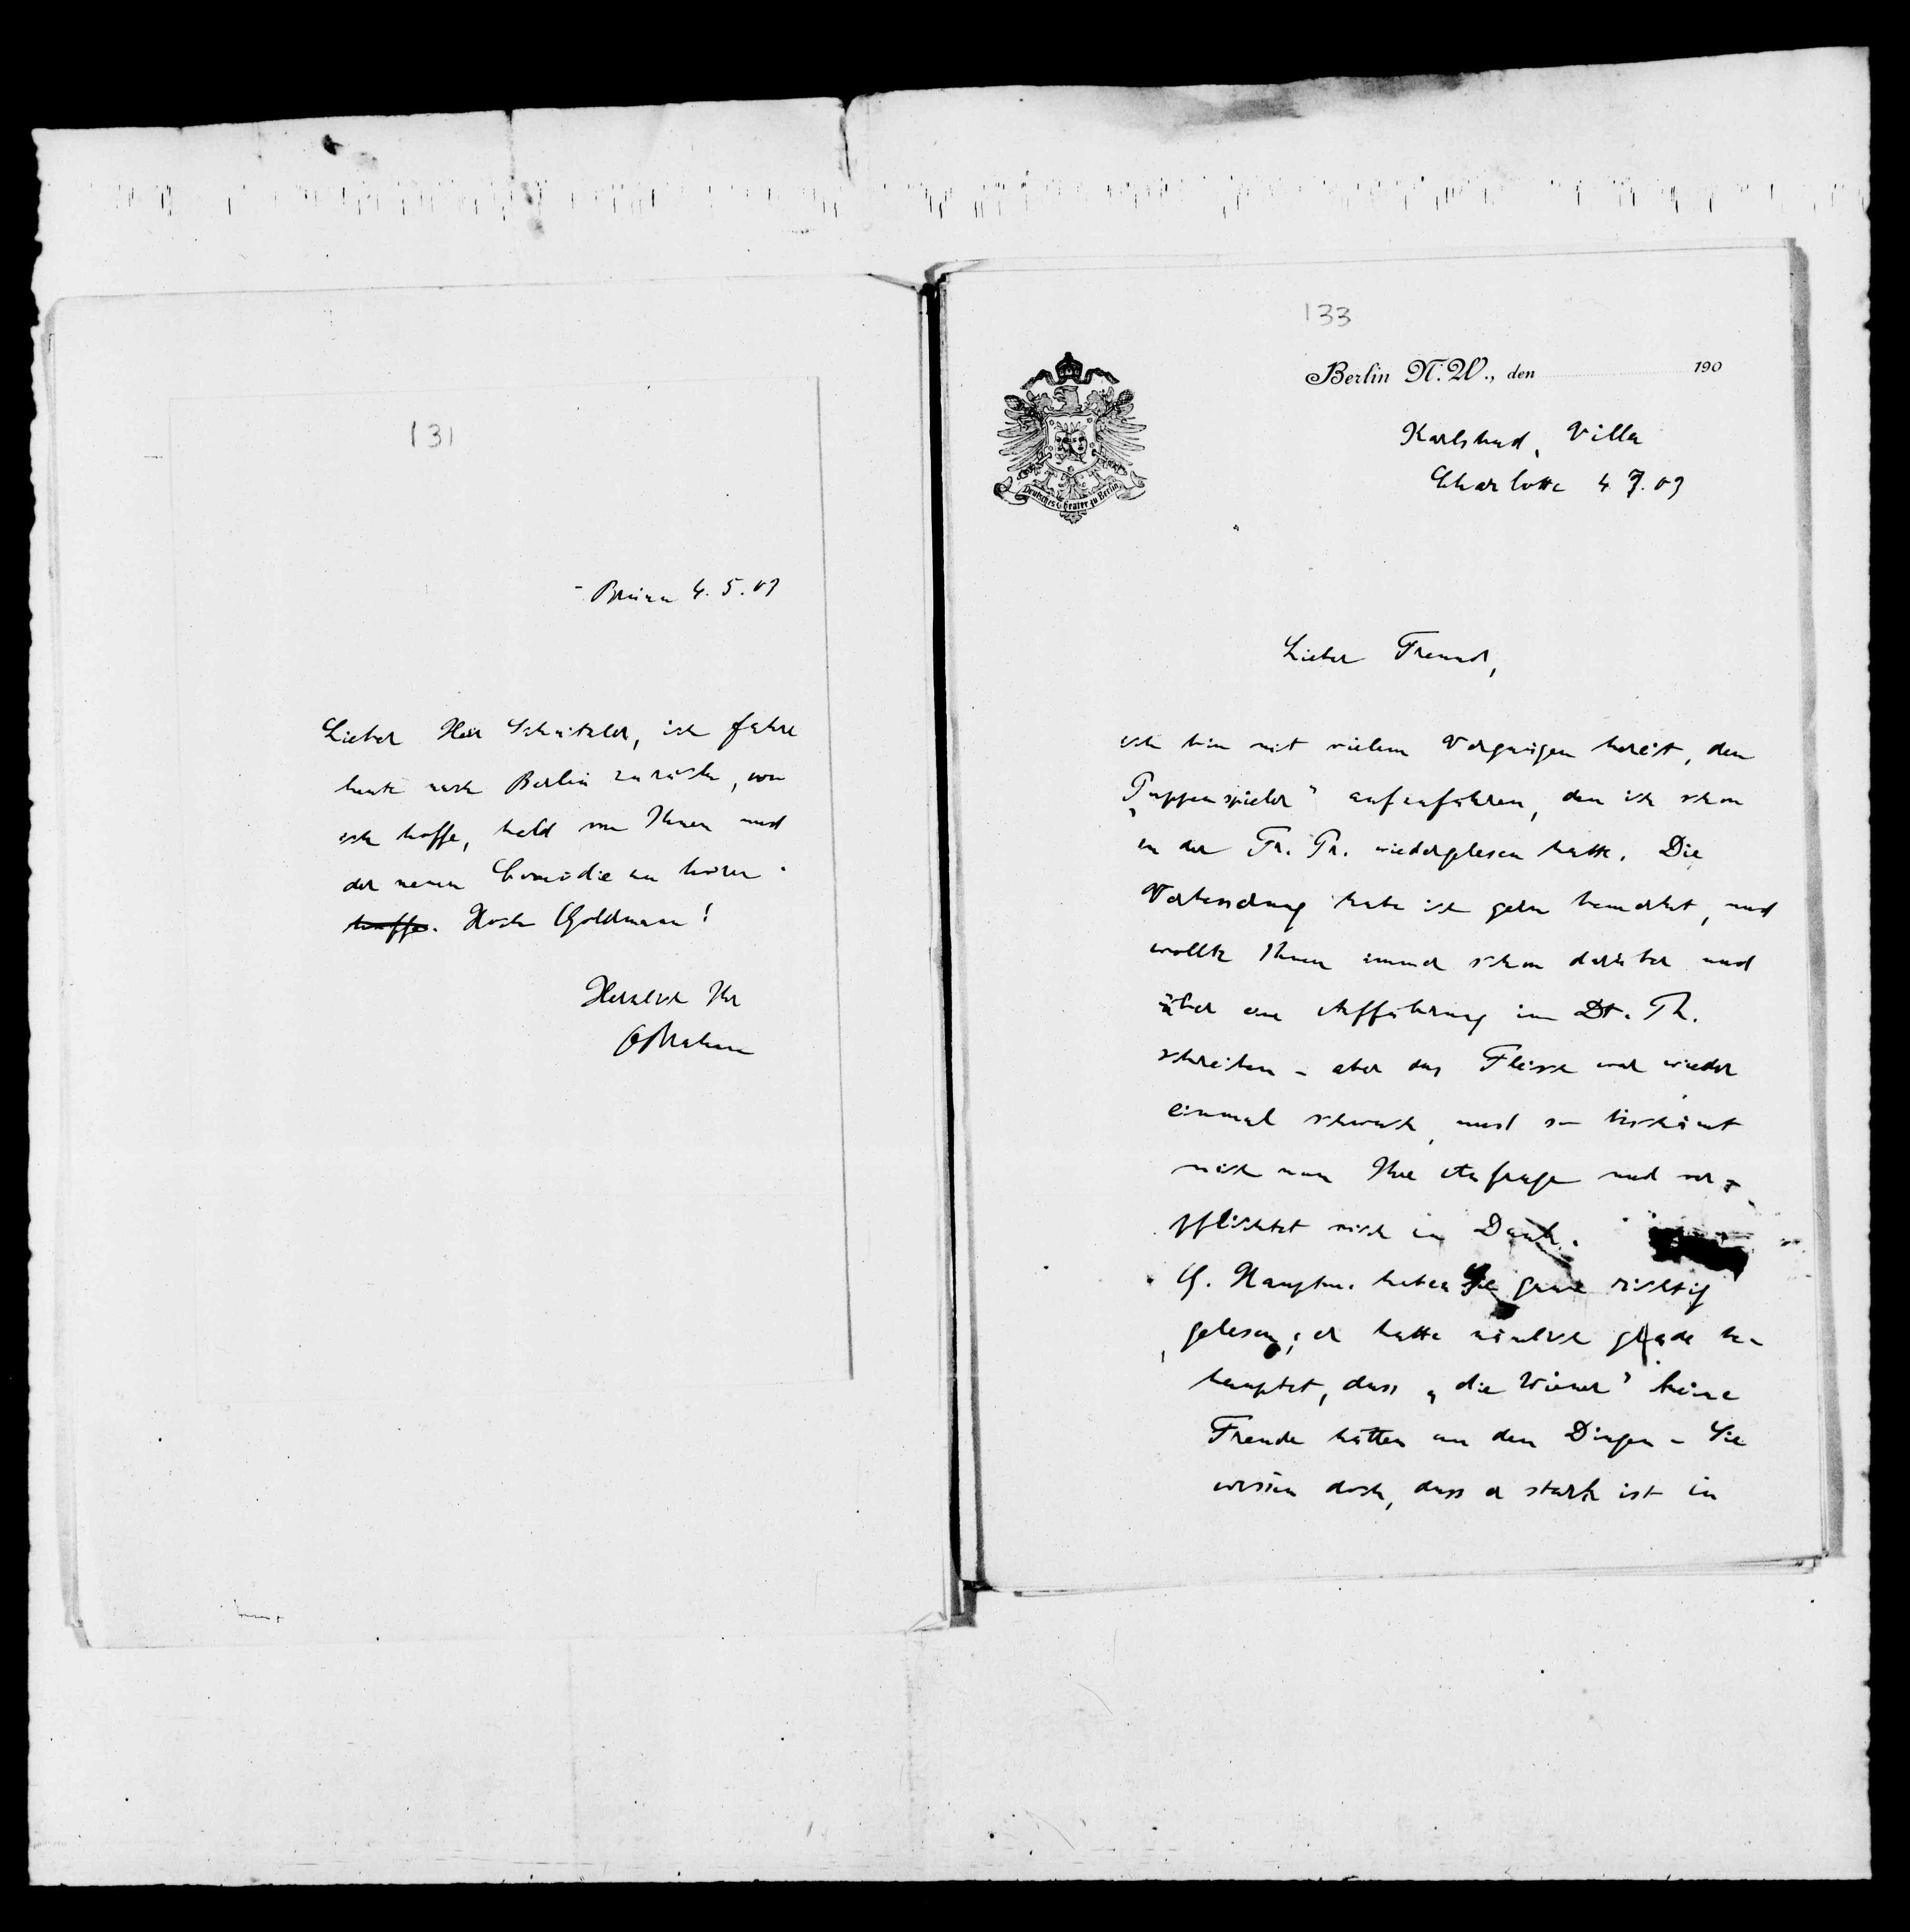 131
Brünn 4. 5. 03
Lieber Herr Schnitzler, ich fahre
heute nach Berlin zurück, wo
ich hoffe, bald von Ihnen und
der neuen Comödie zu hören.
hoffe. Hoch Goldmann!
Herzlich Ihr
OBrahm
133
Berlin N.W., den 190
Deutsches Theater zu Berlin
Karlsbad, Villa
Charlotte 4. 7. 03
Lieber Freund,
ich bin mit vielem Vergnügen bereit, den
„Puppenspieler“ aufzuführen, den ich schon
in der Fr. Pr. wiedergelesen hatte. Die
Verbesserung habe ich gern bemerkt, und
wollte Ihnen immer schon darüber und
über eine Aufführung im Dt. Th.
schreiben – aber das Fleisch war wieder
einmal schwach, und so beschämt
mich nun Ihre Anfrage und ver-
pflichtet mich zu Dank.
G. Hauptm. haben Sie ganz richtig
gelesen; er hatte nämlich grade be-
hauptet, dass „die Wiener“ keine
Freude hätten an den Dingen – Sie
wissen doch, dass er stark ist in